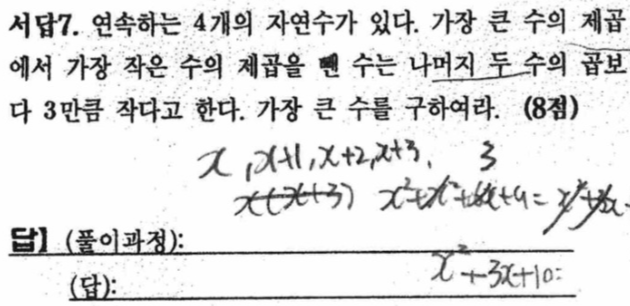 서답7. 연속하는 4개의 자연수가 있다. 가장 큰 수의 제곱
에서 가장 작은 수의 제곱을 뺀 수는 나머지 두 수의 곱보
다 3만큼 작다고 한다. 가장 큰 수를 구하여라. (8점)
x, x+1, x+2, x+3, 3
x(x+3)
답】 (풀이과정):
x²+3x+10=
(답):